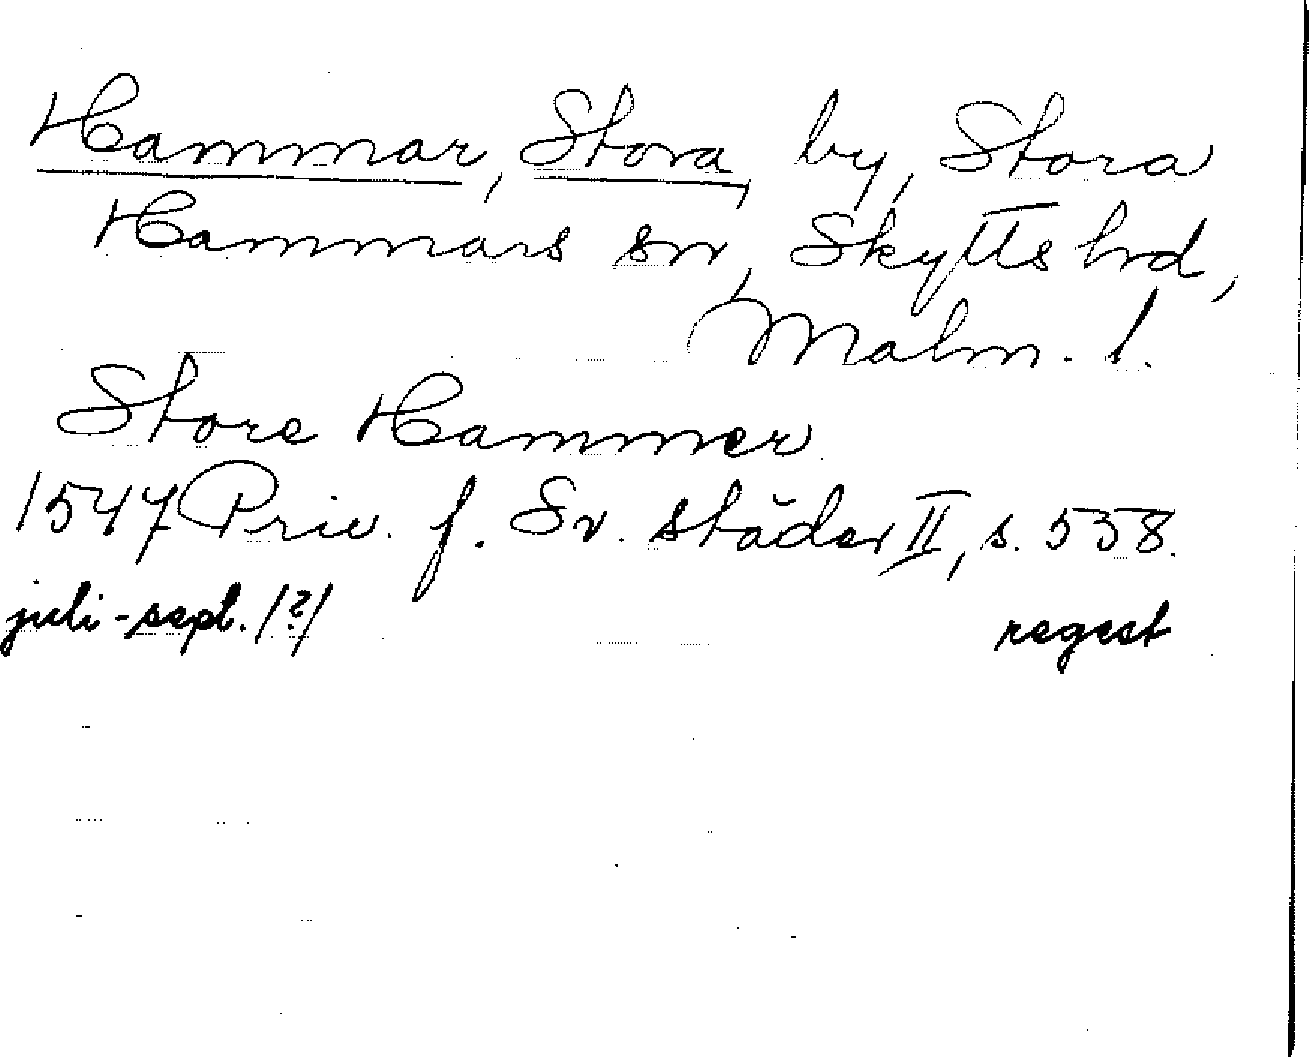 Hammar, Stora, by, Stora
Hammars sn, Skytts hrd,
Malm. l.
Store Hammer
1547 Priv. f. Sv. städer II, s. 538.
juli-sept. /?/ regest